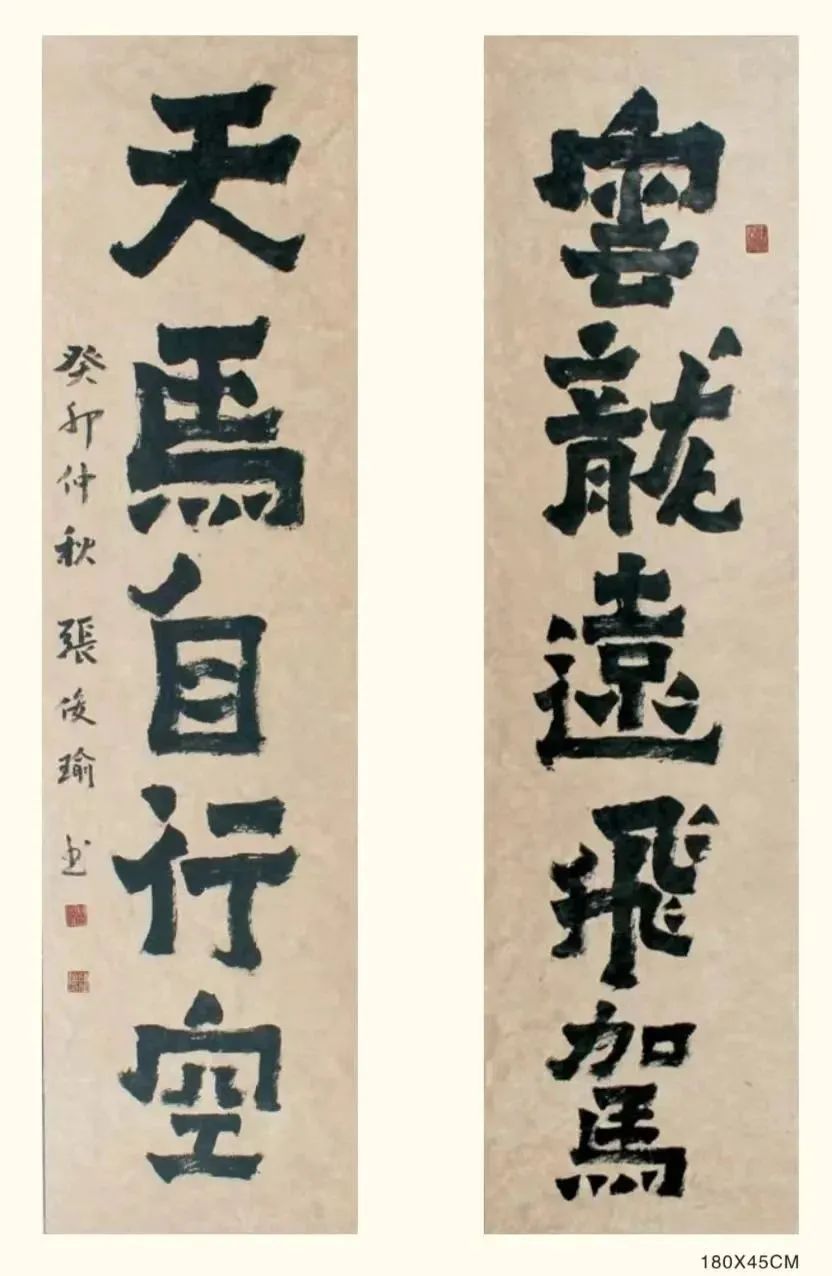 雲龍遠飛駕
天馬自行空
癸卯仲秋 張俊瑜 书
180X45CM